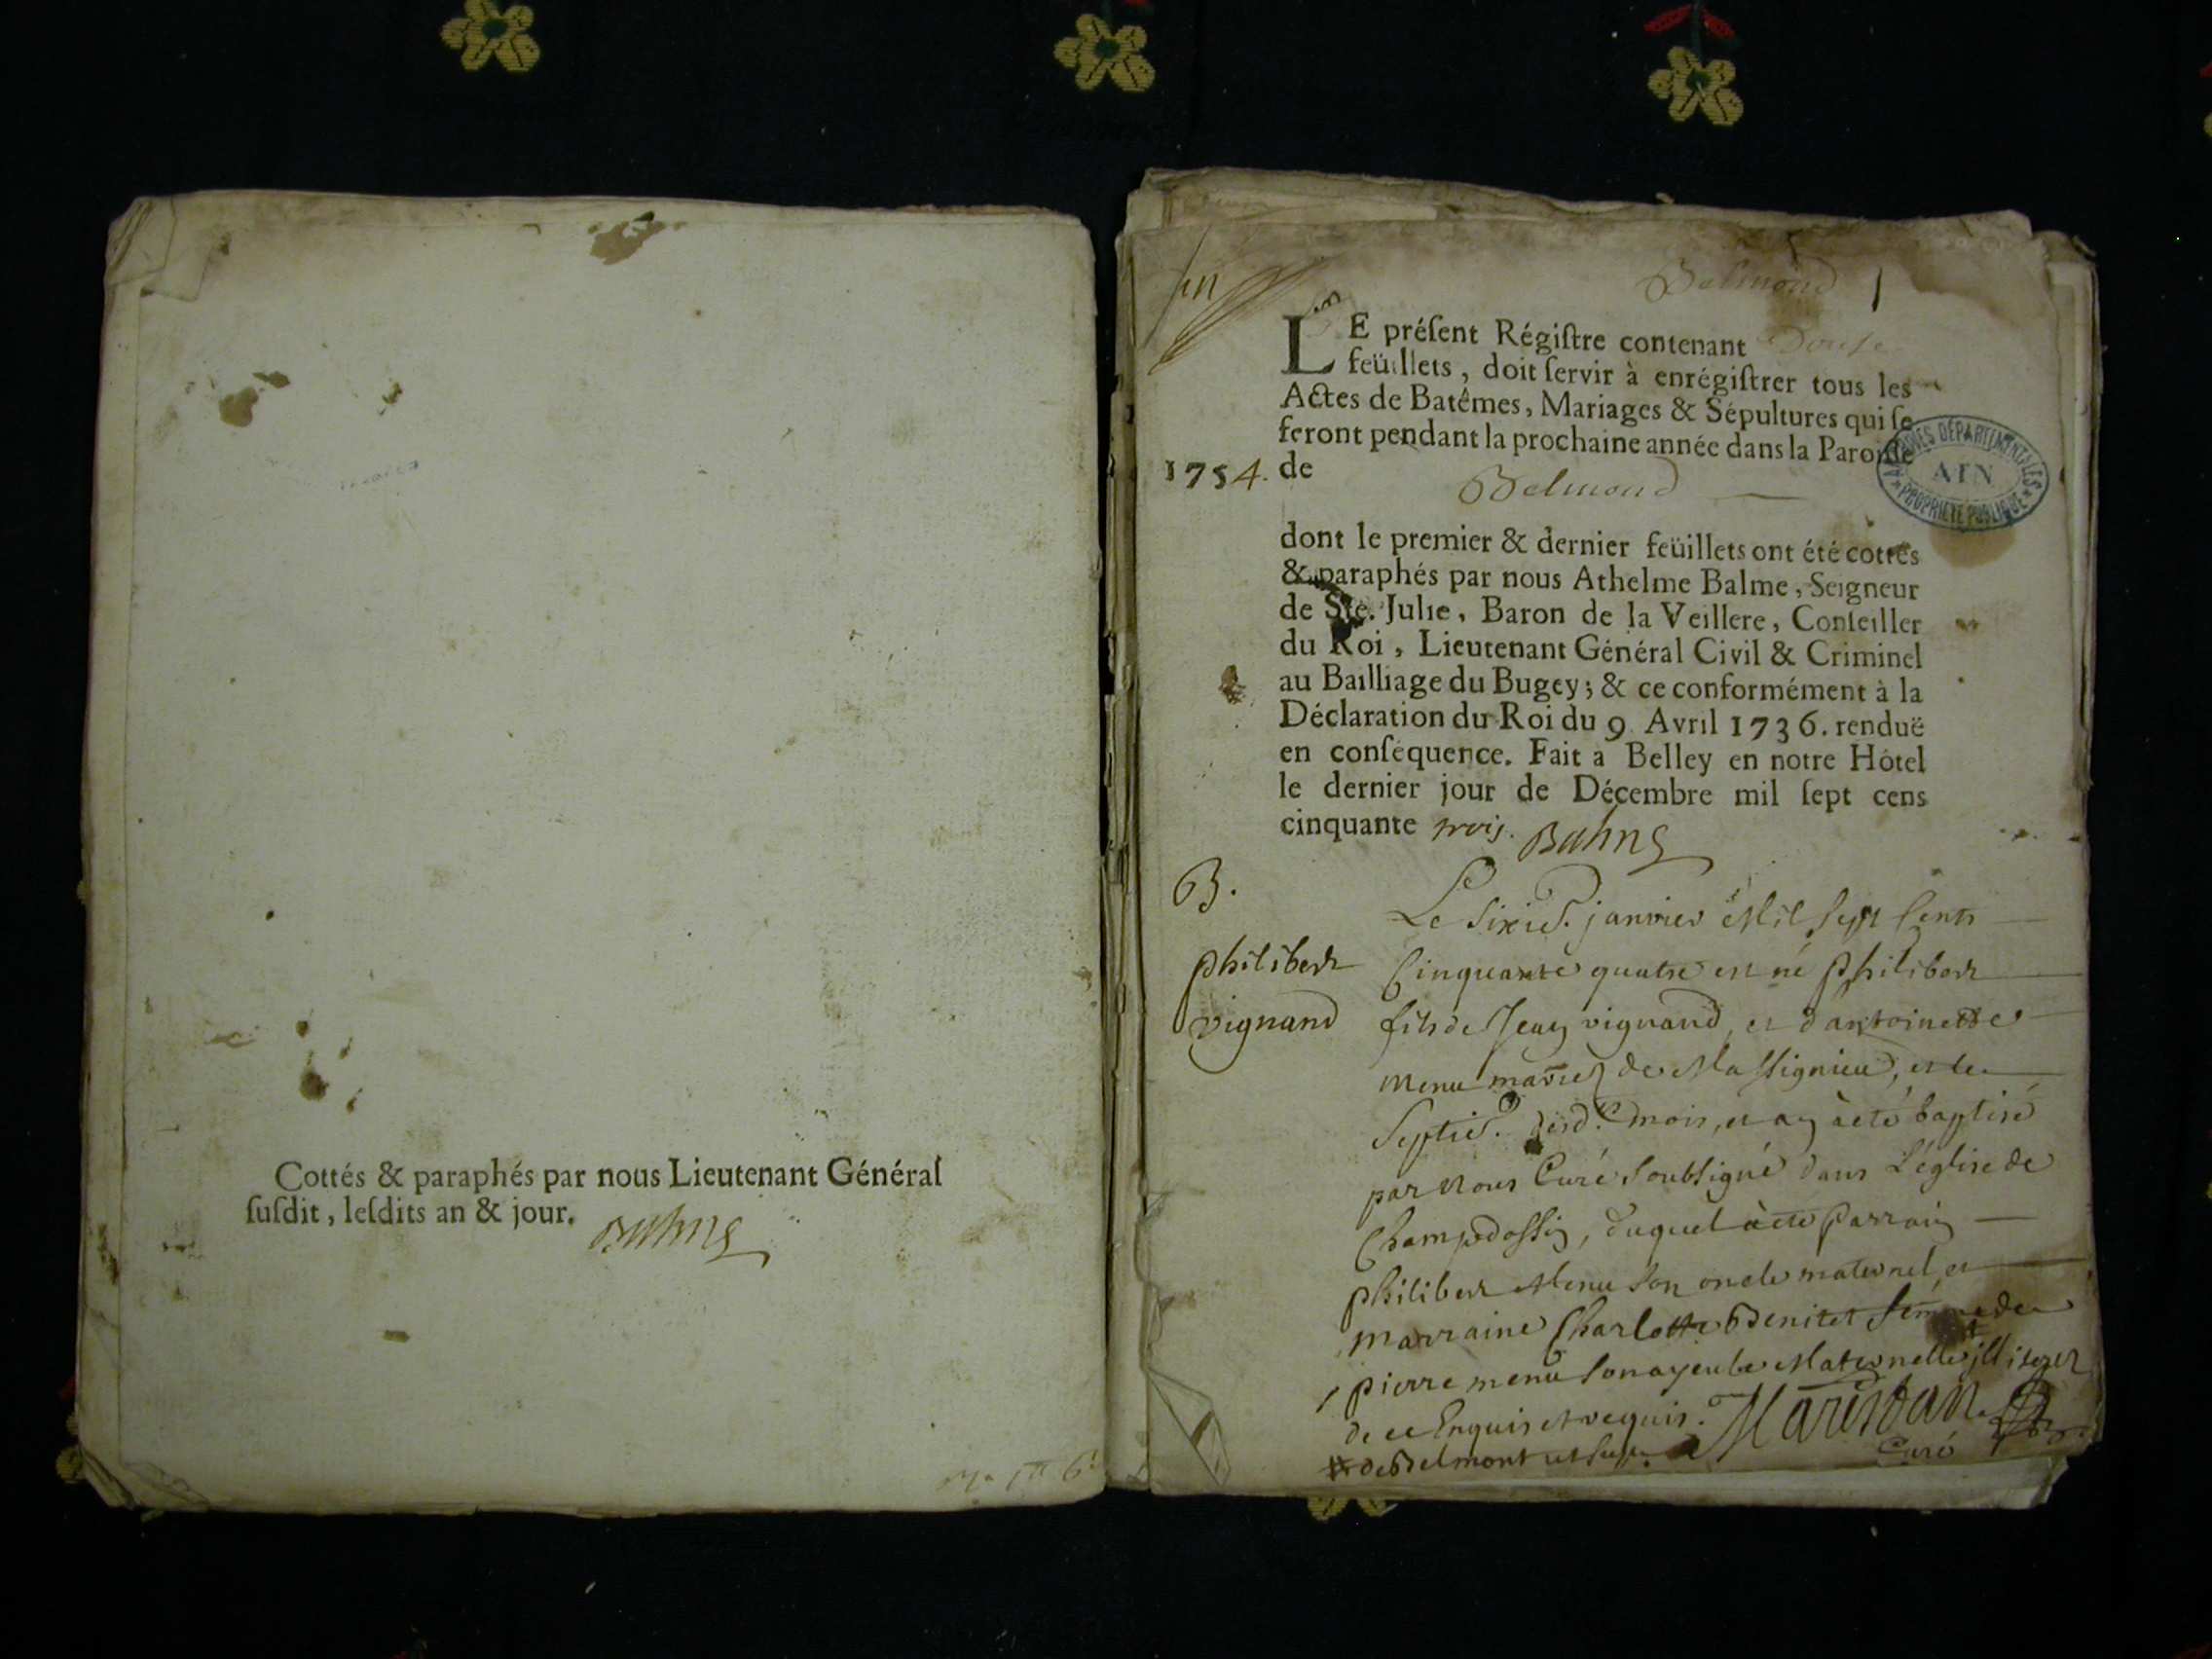 Cottés & paraphés par nous Lieutenant Général
suſdit, leſdits an & jour.
Balme
Belmond 1
LE préſent Régiſtre contenant Douse
feüillets, doit ſervir à enrégiſtrer tous les
Actes de Batêmes, Mariages & Sépultures qui ſe
feront pendant la prochaine année dans la Paroiſſe
1754. de
Belmond
ARCHIVES DÉPARTEMENTALES
AIN
PROPRIÉTÉ PUBLIQUE
dont le premier & dernier feüillets ont été cottés
& paraphés par nous Athelme Balme, Seigneur
de Ste. Julie, Baron de la Veillere, Conſeiller
du Roi, Lieutenant Général Civil & Criminel
au Bailliage du Bugey; & ce conformément à la
Déclaration du Roi du 9 Avril 1736. renduë
en conſéquence. Fait à Belley en notre Hôtel
le dernier jour de Décembre mil ſept cens
cinquante trois. Balme
B.
Le sixie. janvier Mil sept Cents
philibert
vignand
Cinquante quatre est né philibert
fils de Jean vignand, et d'antoinette
menu mariez de Massignieu, et le
septie. dud. mois, et an à eté baptisé
par Nous Curé soubsigné dans L'église de
Champdossin, duquel à eté parrain
philibert Menu son oncle maternel, et
marraine Charlotte Benitet femme de
pierre menu son ayeule Maternelle illiterez
de ce Enquis et requis. Marestan
Curé
de Belmont